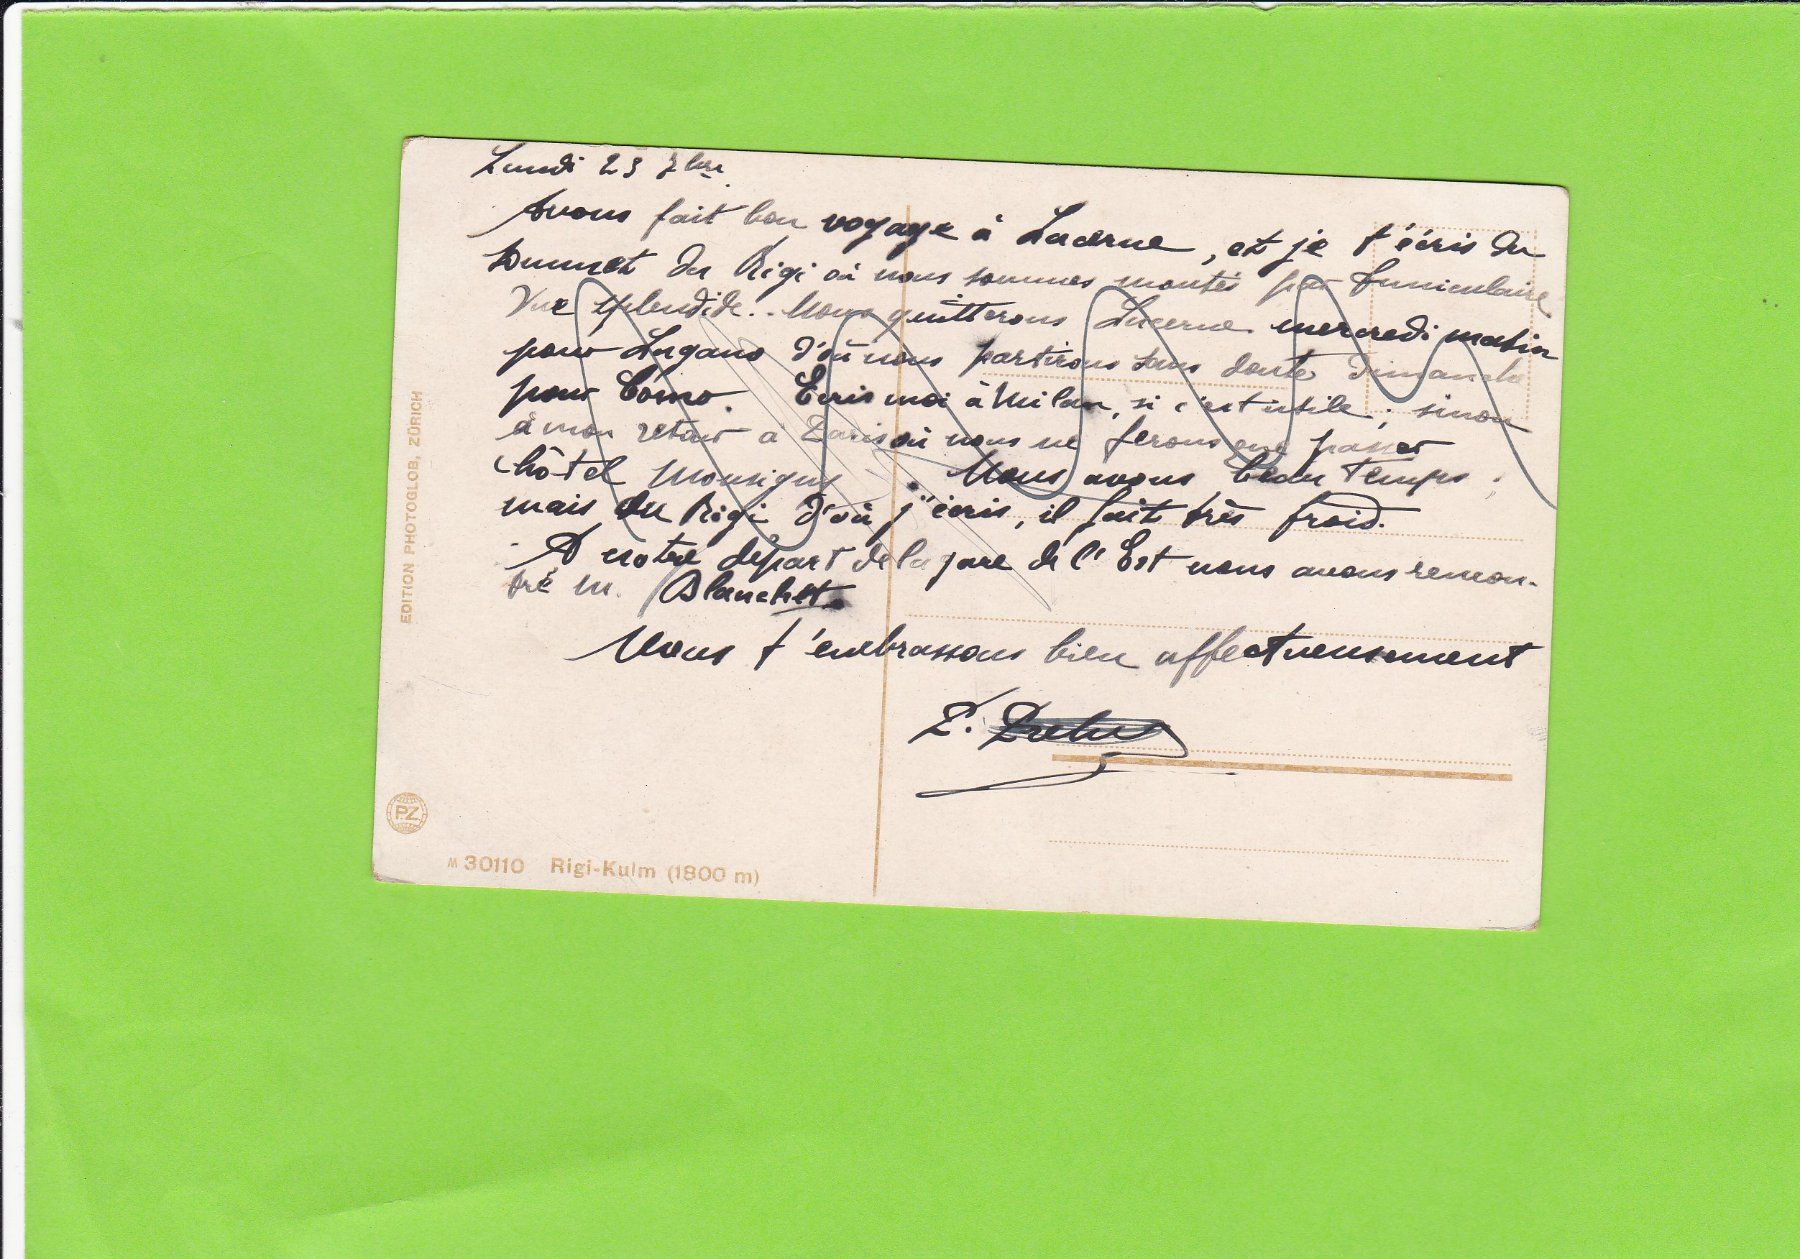 Lundi 23 7bre
Avons fait bon voyage à Lucerne, et je t'écris du
sommet du Rigi où nous sommes montés par funiculaire
Vue splendide.. Nous quitterons Lucerne mercredi matin
pour Lugano d'où nous partirons sans doute dimanche
pour Como. Ecris moi à Milan, si c'est utile; sinon
à mon retour à Paris où nous ne ferons que passer
hôtel Monsigny Nous avons beau temps;
mais au Rigi d'où j'écris, il fait très froid.
A notre départ de la gare de l'Est nous avons rencon-
tré M. Blanchet.
Nous t'embrassons bien affectueusement
P.
EDITION PHOTOGLOB, ZÜRICH
PZ
M 30110 Rigi-Kulm (1800 m)